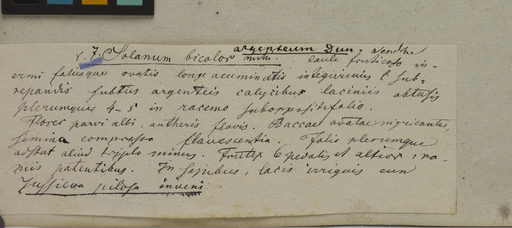 argenteum Dun: Sendtn
v. 7. Solanum bicolor mihi. Caule fruticoso in-
ermi foliisque ovatis longe acuminatis integerrimis l. sub-
repandis subtus argenteis calycibus laciniis obtusis
plerumque 4-5 in racemo suboppositifolio.
Flores parvi albi, antheris flavis. Baccae ovatae nigricantes,
semina compressa flavescentia. Folio plerumque
adstat aliud triplo minus. Frutex 6 pedalis et altior, ra-
mis patentibus. In sepibus, locis irriguis cum
Jussiewa pilosa inveni.